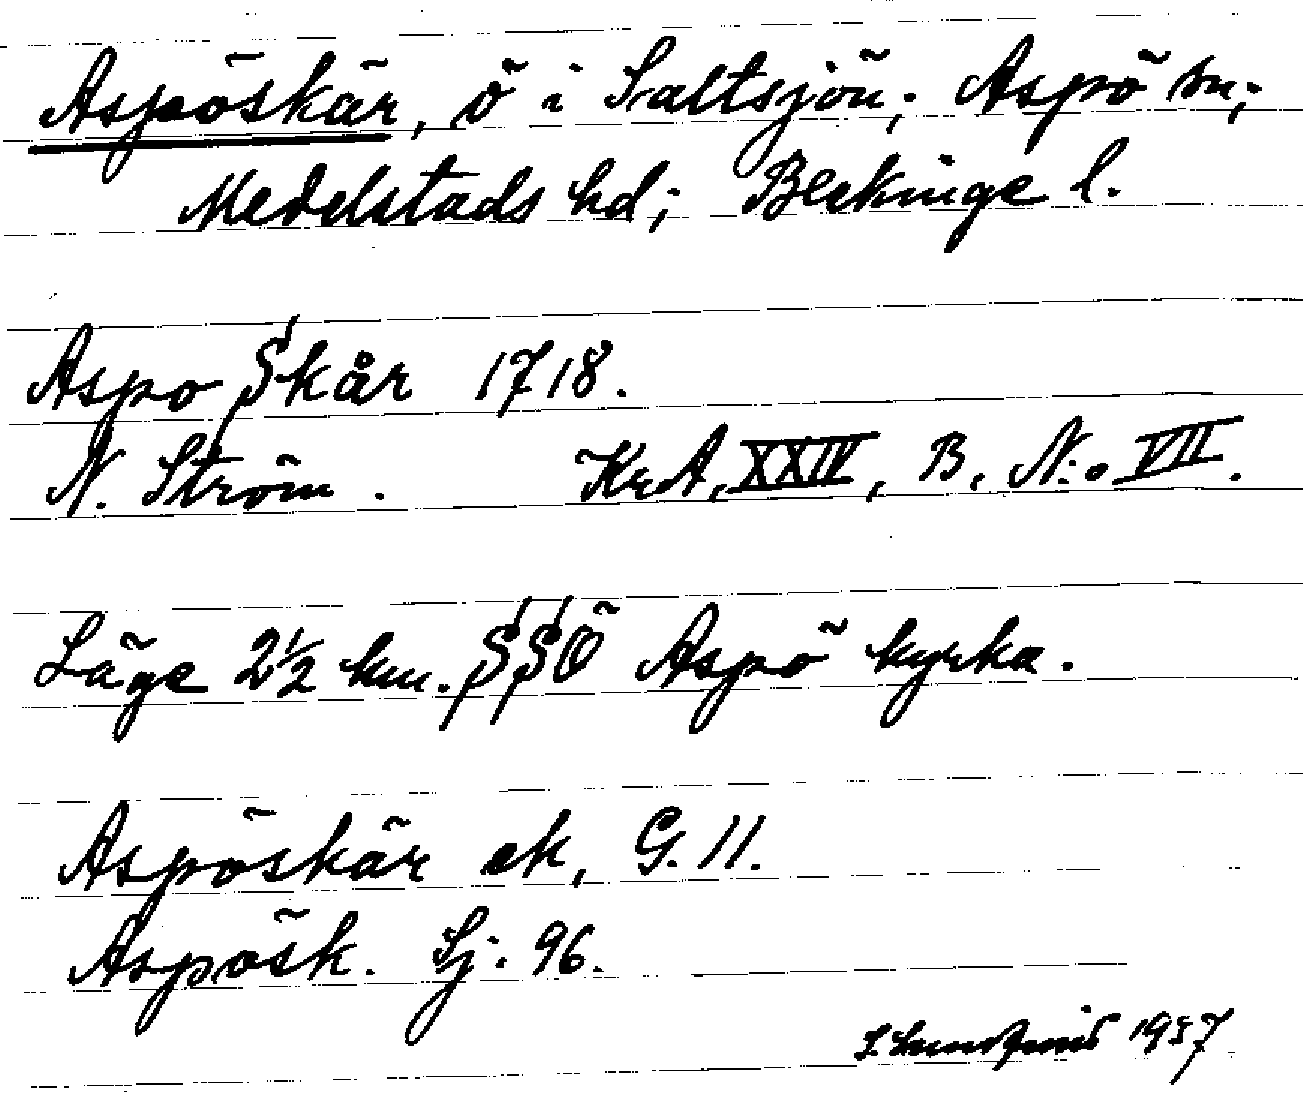 Aspöskär, ö i Saltsjön; Aspö sn;
Medelstads hd; Blekinge l.
Aspo Skår 1718.
N. Ström. KrA, XXIV, B. N:o VII.
Läge 2½ km. SSÖ Aspö kyrka.
Aspöskär ek, G. 11.
Aspösk. Sj. 96.
1957